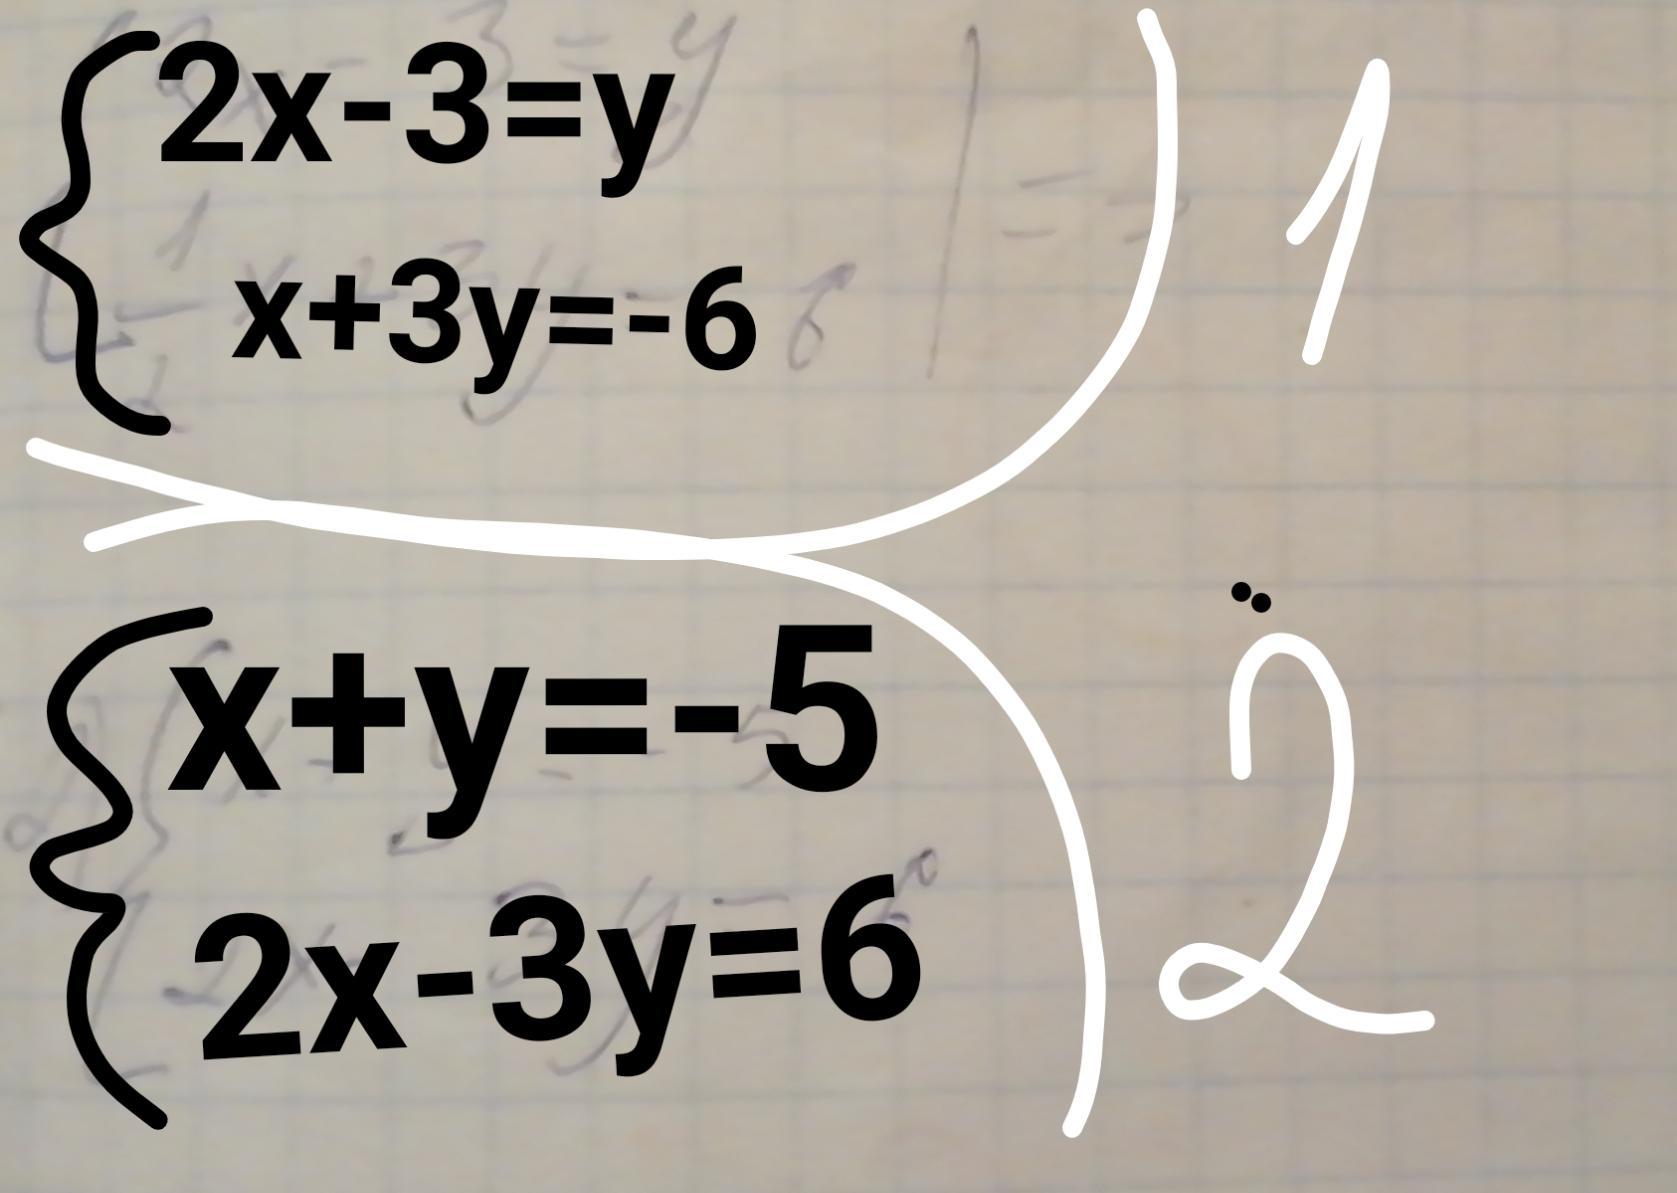 2x-3=y
x+3y=-6
1
x+y=-5
2x-3y=6
2